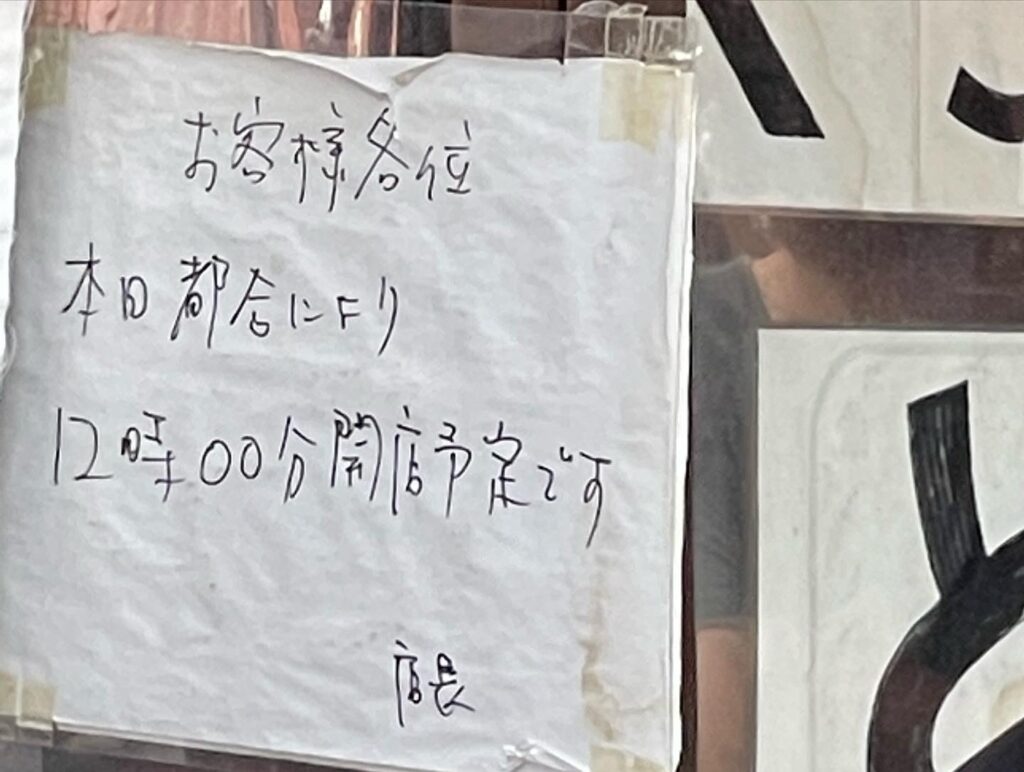 お客様各位
本日都合により
12時00分開店予定です
店長